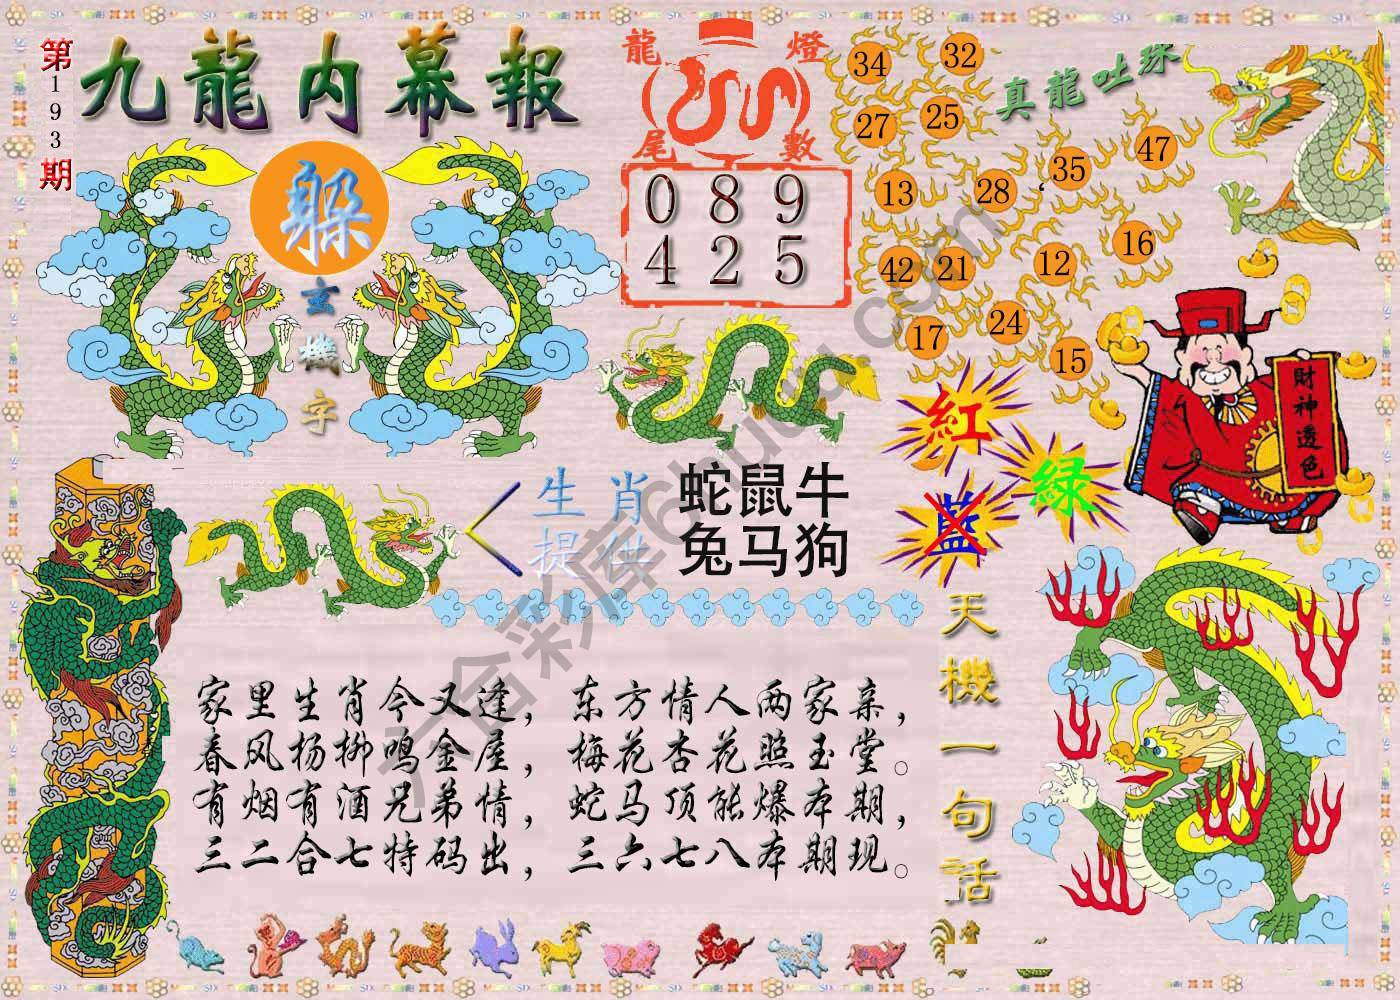 第193期
九龍内幕報
躲
玄機字
龍燈尾數
0 8 9
4 2 5
34 32
27 25
真龍吐珠
13 28 35 47
42 21 12 16
17 24 15
財神透色
紅
綠
藍
生肖提供
蛇鼠牛
兔马狗
天機一句话
家里生肖今又逢，东方情人两家亲，
春风杨柳鸣金屋，梅花杏花照玉堂。
有烟有酒兄弟情，蛇马顶能爆本期，
三二合七特码出，三六七八本期现。
六合彩库6huck.com